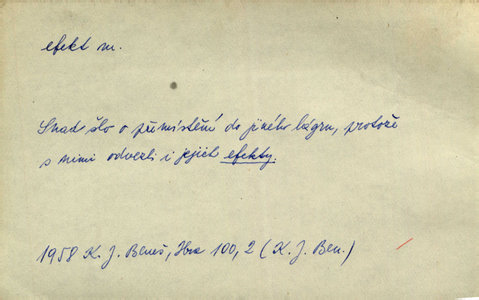 efekt m.
Snad šlo o přemístění do jiného lágru, protože
s nimi odvezli i jejich efekty.
1958 K. J. Beneš, Hra 100, 2 (K. J. Ben.)